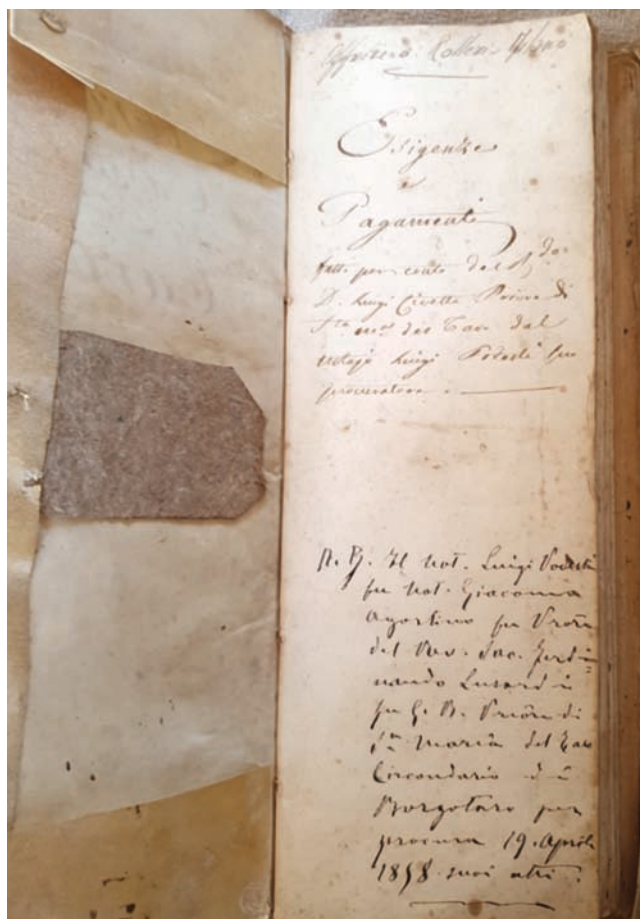 Esigenze
e
Pagamenti
fatti per conto del R.do
D. Luigi Civetta Priore di
S.ta M.a del Taro dal
notajo Luigi Podestà suo
procuratore.
N. B. Il Not. Luigi Podestà
fu Not. Giacomo
Agostino fu Procu
del Rev. Sac. Ferdi=
nando Lusardi
fu G. B. Priore di
S.ta Maria del Taro
Circondario di
Borgotaro per
procura 19. Aprile
1858 suoi atti.